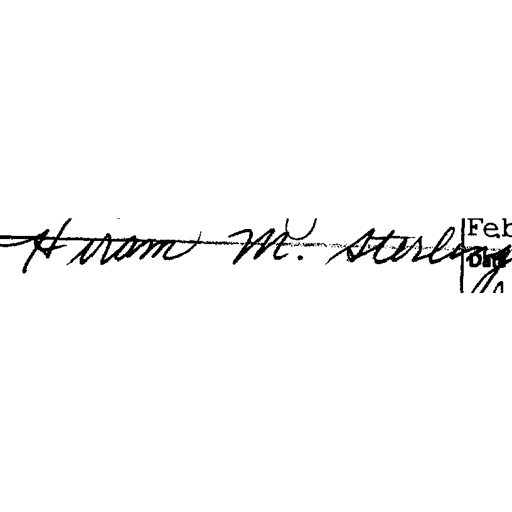 Hiram M. Sterling
Feb